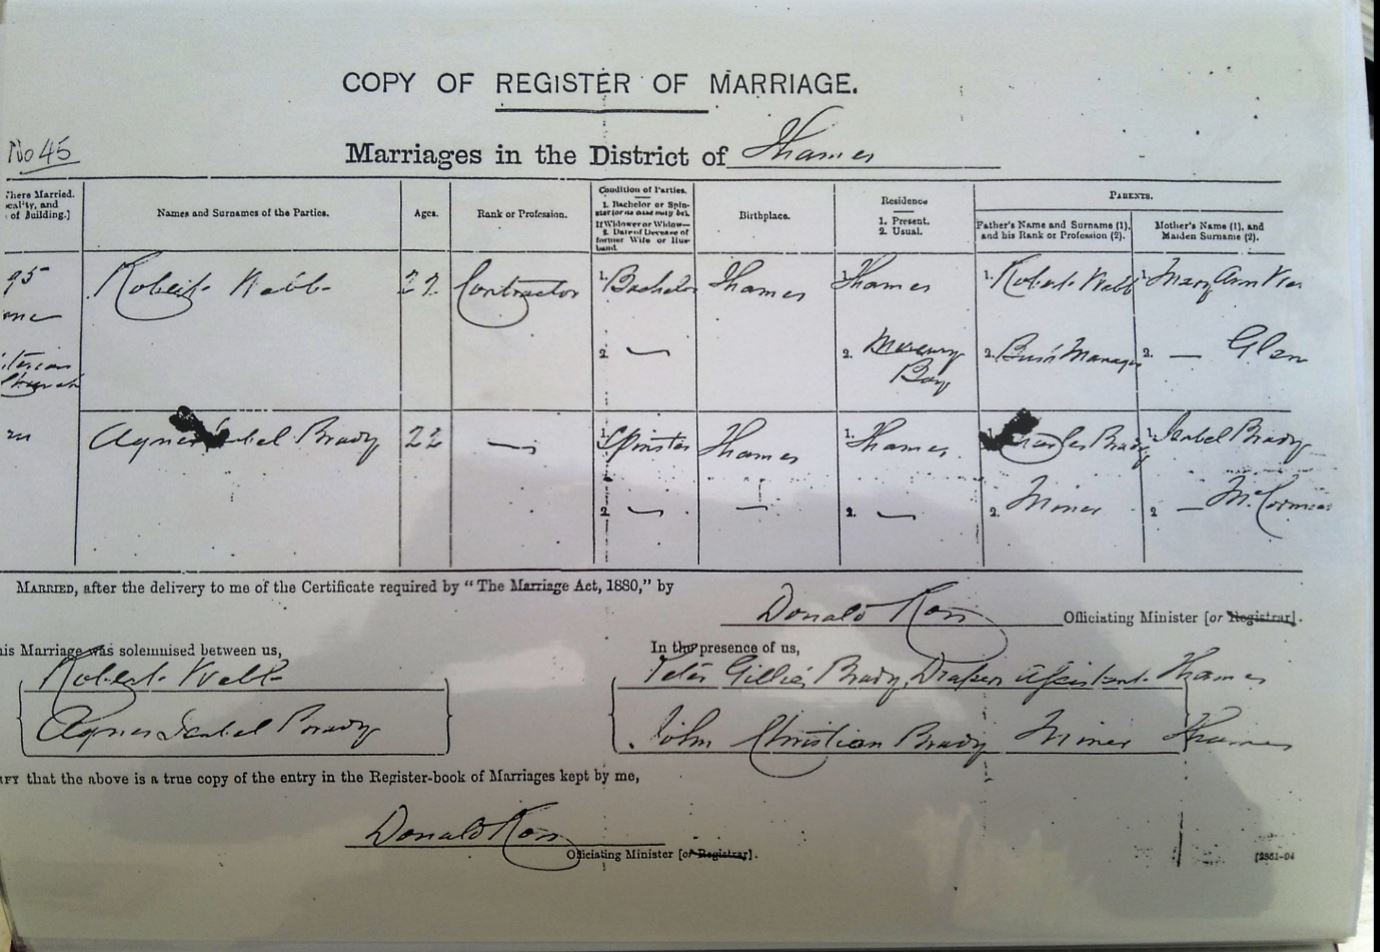 COPY OF REGISTER OF MARRIAGE.
No 45
Marriages in the District of Thames
here Married.
cality, and
of Building.]
Names and Surnames of the Parties.
Ages.
Rank or Profession.
Condition of Parties.
1. Bachelor or Spin-
ster (or as case may be).
If Widower or Widow—
2. Date of Decease of
former Wife or Hus-
band.
Birthplace.
Residence
1. Present.
2. Usual.
PARENTS.
Father's Name and Surname (1),
and his Rank or Profession (2).
Mother's Name (1), and
Maiden Surname (2).
95
Robert Webb
Contractor
1. Bachelor
Thames
1. Thames
1. Robert Webb
1. Mary Ann
2. —
2. Mercury
Bay
2. Bush Manager
2. —
Agnes Isabel Brady
22
—
1. Spinster
Thames
1. Thames
1. Charles Brady
1. Isabel Brady
2. —
—
2. —
2. Miner
2 — McCormac
MARRIED, after the delivery to me of the Certificate required by "The Marriage Act, 1880," by
Donald Ross Officiating Minister [or Registrar].
his Marriage was solemnised between us,
In the presence of us,
Robert Webb
Peter Gillies Brady, Drapers Assistant Thames
Agnes Isabel Brady
John Christian Brady Miner Thames
FY that the above is a true copy of the entry in the Register-book of Marriages kept by me,
Donald Ross
Officiating Minister [or Registrar].